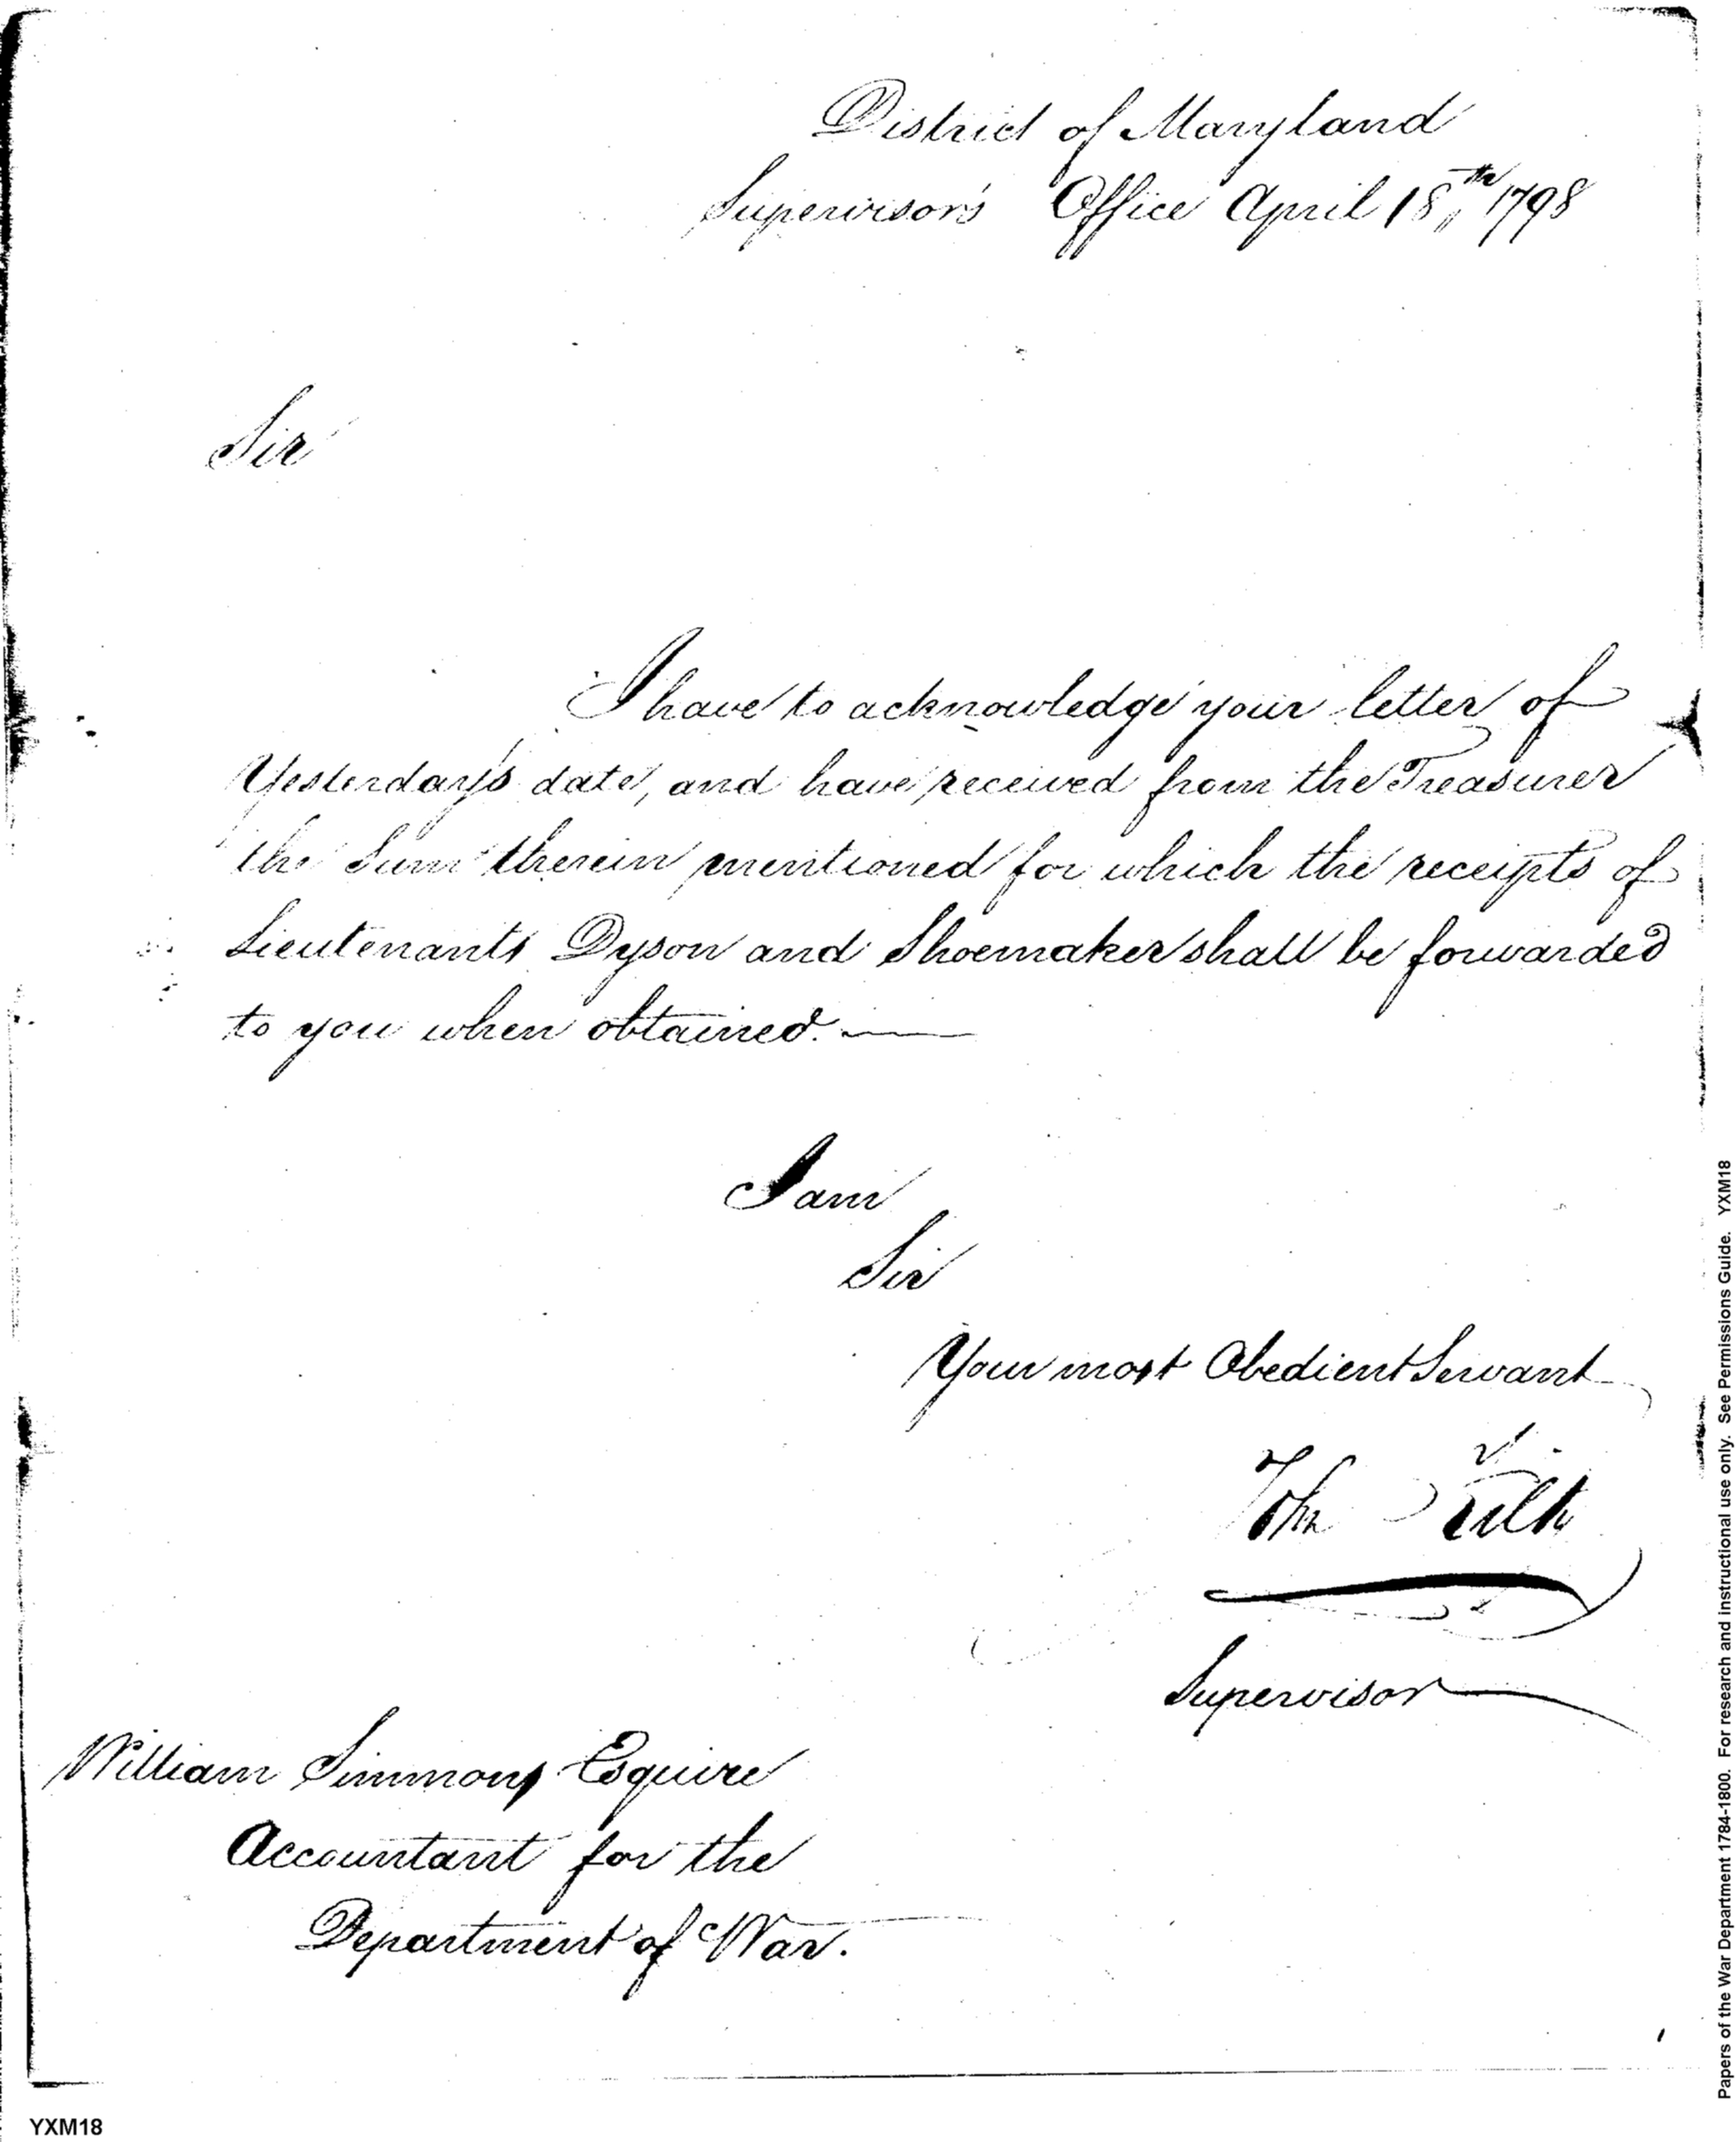 District of Maryland
Supervisor's Office April 18th 1798
Sir
I have to acknowledge your letter of
Yesterday's date, and have received from the Treasurer
the Sum therein mentioned for which the receipts of
Lieutenants Dyson and Shoemaker shall be forwarded
to you when obtained.—
I am
Sir
Your most Obedient Servant
John Kilty
Supervisor
William Simmons Esquire
Accountant for the
Department of War.
YXM18
Papers of the War Department 1784-1800. For research and instructional use only. See Permissions Guide. YXM18